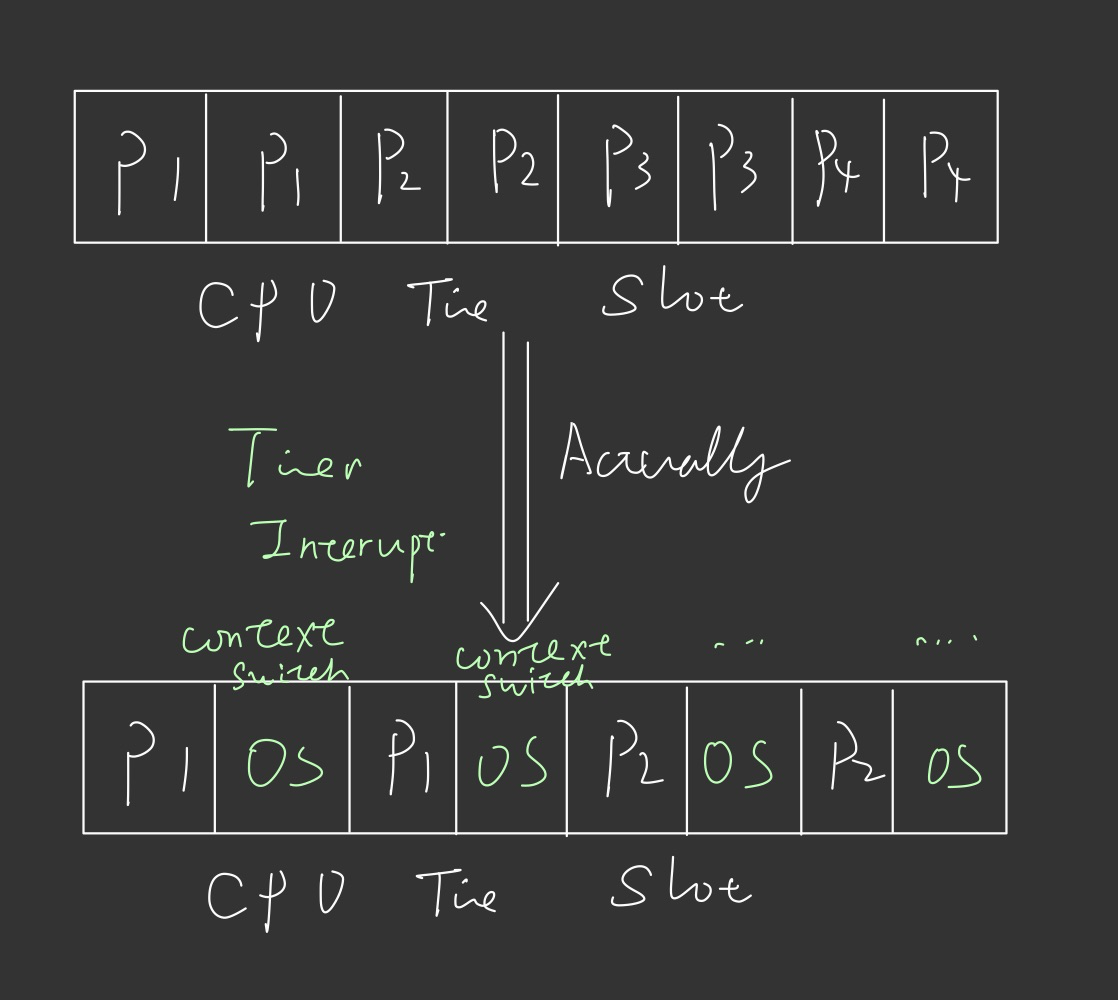 P1 P1 P2 P2 P3 P3 P4 P4
CPU Tie Slot
Actually
Tier
Interupt
context
switch
context
switch
.... ....
P1 OS P1 OS P2 OS P2 OS
CPU Tie Slot